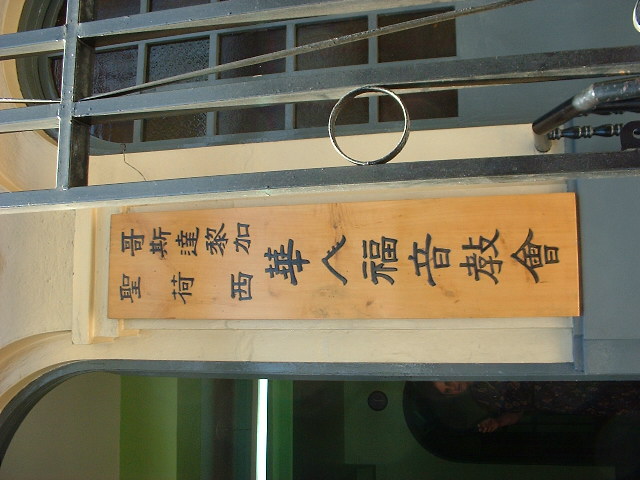 哥斯達黎加
聖荷西
華人福音教會